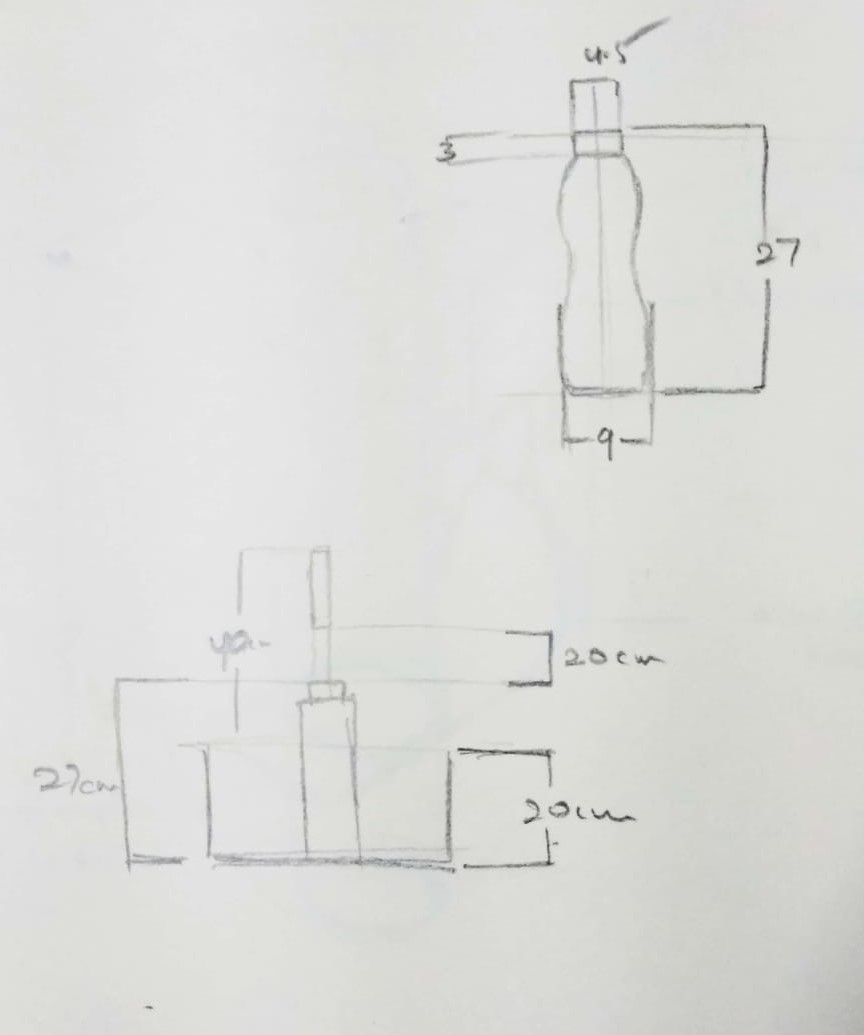 4.5
3
27
9
40
20cm
27cm
20cm